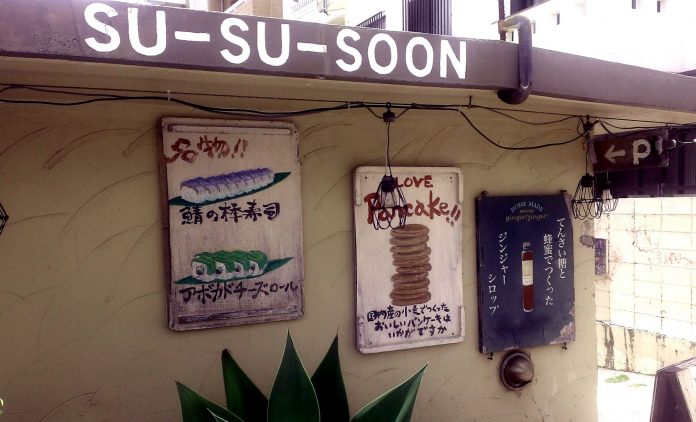 SU-SU-SOON
名物!!
鯖の棒寿司
アボカドチーズロール
LOVE
Pancake!!
国内産の小麦でつくった
おいしいパンケーキは
いかがですか
HOME MADE
ginger!ginger!
てんさい糖と
蜂蜜でつくった
ジンジャー
シロップ
←P